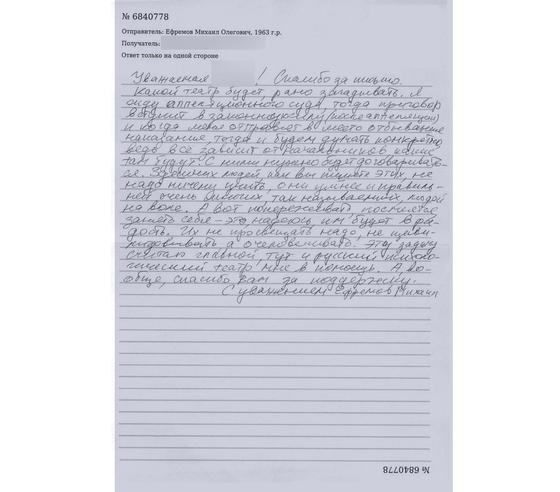 № 6840778
Отправитель: Ефремов Михаил Олегович, 1963 г.р.
Получатель:
Ответ только на одной стороне
Уважаемая ! Спасибо за письмо.
Какой театр будет рано загадывать. Я
жду аппеляционного суда, тогда приговор
вступит в законную силу (после аппеляции)
и когда меня отправят в место отбывания
наказания, тогда и будем думать конкретно
ведь все зависит от начальников какие
там будут. С ними нужно будет договаривать-
ся. Здешних людей, как вы пишите этих, не
надо ничему учить, они умнее и правиль-
ней очень многих, так называемых, людей
на воле. А вот попереживать, постигая
занять себя - это, надеюсь им будет в ра-
дость. Их не просвещать надо, не цивили-
а очеловечивать. Эту задачу
считаю главной, тут и русский психоло-
гический театр мне в помощь. А, во-
обще, спасибо вам за поддержку.
С уважением Ефремов Михаил
№ 6840778